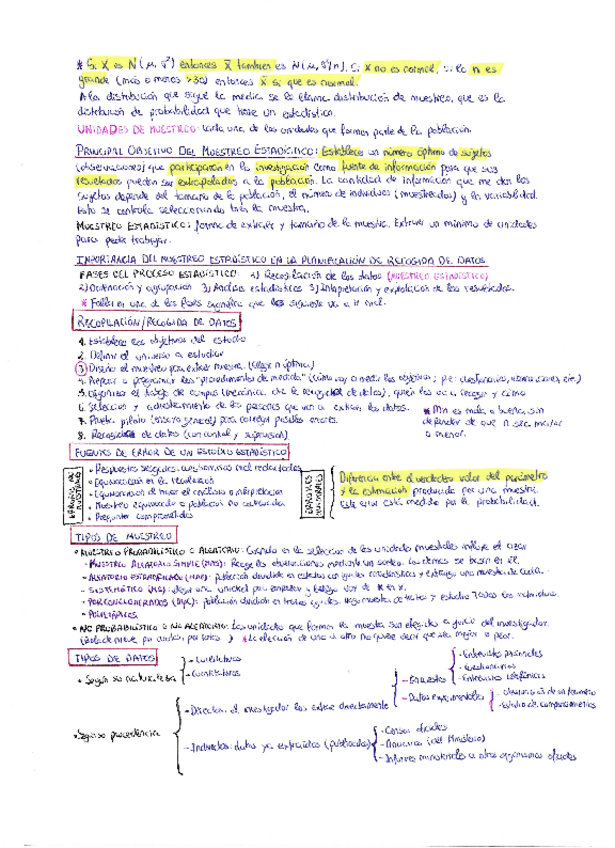 * Si X es N(μ, σ²) entonces x̄ también es N(μ, σ²/n). Si X no es normal, si la n es
grande (más o menos >30) entonces x̄ si que es normal.
A la distribución que sigue la media se le llama distribución de muestreo, que es la
distribución de probabilidad que tiene un estadístico.
UNIDADES DE MUESTREO: cada una de las unidades que forman parte de la población.
PRINCIPAL OBJETIVO DEL MUESTREO ESTADÍSTICO: Establecer un número óptimo de sujetos
(observaciones) que participarán en la investigación como fuente de información para que sus
resultados puedan ser extrapolados a la población. La cantidad de información que me dan los
sujetos depende del tamaño de la población, el número de individuos (muestreados) y la variabilidad.
Esto se controla seleccionando bien la muestra.
MUESTREO ESTADÍSTICO: forma de extraer y tamaño de la muestra. Extraer un mínimo de unidades
para poder trabajar.
IMPORTANCIA DEL MUESTREO ESTADÍSTICO EN LA PLANIFICACIÓN DE RECOGIDA DE DATOS
FASES DEL PROCESO ESTADÍSTICO: 1) Recopilación de los datos (MUESTREO ESTADÍSTICO)
2) Ordenación y agrupación 3) Análisis estadísticos 3) Interpretación y explotación de los resultados.
* Fallar en una de las fases significa que las siguientes va a ir mal.
RECOPILACIÓN/RECOGIDA DE DATOS
1. Establecer los objetivos del estudio
2. Definir el universo a estudiar
3. Diseño el muestreo para extraer muestra. (código n óptima)
4. Preparar o programar los "procedimientos de medida" (cómo voy a medir los objetivos; p.e: cuestionarios, observaciones, etc.)
5. Organizar el trabajo de campo (mecánica de la recogida de datos), quién los va a recoger y cómo
6. Selección y adiestramiento de las personas que van a extraer los datos.
* M n es mala o buena sin
7. Prueba piloto (ensayo general) para corregir posibles errores.
depender de que n sea mayor
8. Recogida de datos (con control y supervisión)
o menor.
FUENTES DE ERROR DE UN ESTUDIO ESTADÍSTICO
ERRORES NO MUESTRALES
• Respuestas sesgadas, cuestionarios mal redactados
• Equivocación en la recolección
• Equivocarnos al hacer el análisis o interpretación
• Muestreo equivocado o población no cubierta
• Preguntas comprometidas
ERRORES MUESTRALES
Diferencia entre el verdadero valor del parámetro
y la estimación producida por una muestra.
Este error está medido por la probabilidad.
TIPOS DE MUESTREO
• MUESTREO PROBABILÍSTICO O ALEATORIO: Cuando en la selección de las unidades muestrales influye el azar
- MUESTREO ALEATORIO SIMPLE (MAS): Recoge las observaciones mediante un sorteo. Los demás se basan en él.
- ALEATORIO ESTRATIFICADO (MAE): población dividida en estratos con iguales características y extraigo una muestra de cada.
- SISTEMÁTICO (MS): elegir una unidad para empezar y luego voy de K en K.
- POR CONGLOMERADOS (MPC): población dividida en trozos iguales. Hago muestra de trozos y estudio TODOS los individuos.
- POLIETÁPICOS.
• NO PROBABILÍSTICO O NO ALEATORIO: Las unidades que forman la muestra son elegidas a juicio del investigador.
(bola de nieve, por cuotas, por rutas) * La elección de una u otro no quiere decir que sea mejor o peor.
TIPOS DE DATOS
• Según su naturaleza
- Cualitativos
- Cuantitativos
• Según su procedencia
- Directos: el investigador los extrae directamente
- Encuestas
- Entrevistas personales
- Cuestionarios
- Entrevistas telefónicas
- Datos experimentales
- observaciones de un fenómeno
- Estudio de comportamientos
- Indirectos: datos ya extraídos (publicados)
- Censos oficiales
- Anuarios (del Ministerio)
- Informes ministeriales u otros organismos oficiales